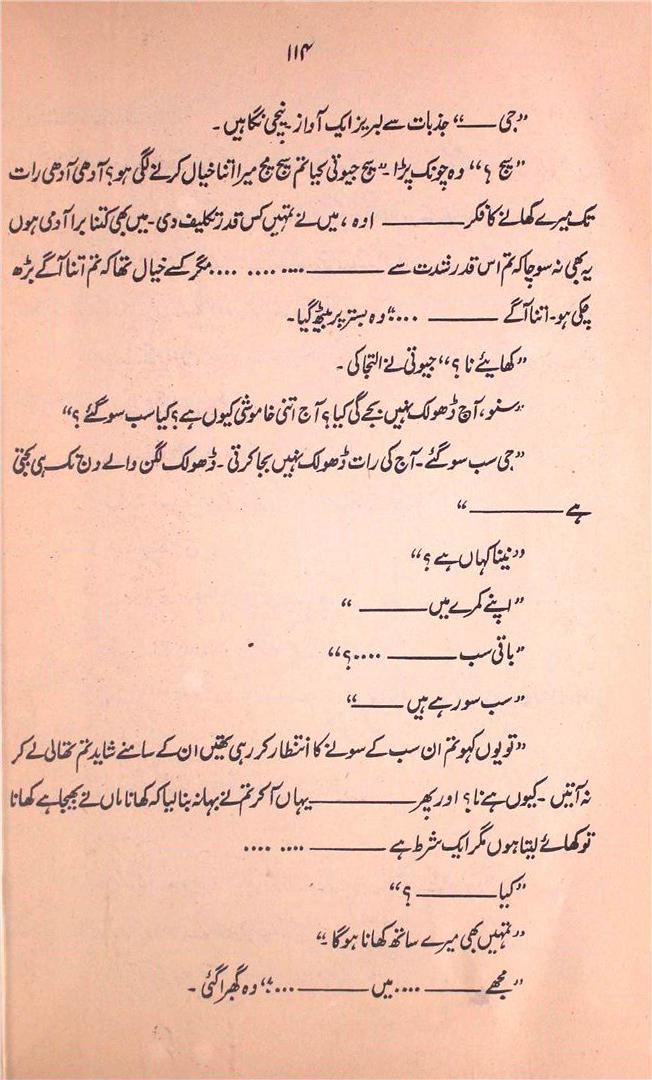 ۱۱۴
”جی ——“ جذبات سے لبریز ایک آواز۔ نیچی نگاہیں۔
”سچ ؟“ وہ چونک پڑا۔ ”سچ جیوتی کیا تم سچ مچ میرا اتنا خیال کرنے لگی ہو؟ آدھی آدھی رات
تک میرے کھانے کا فکر ———— اوہ ، میں نے تمہیں کس قدر تکلیف دی۔ میں بھی کتنا برا آدمی ہوں
یہ بھی نہ سوچا کہ تم اس قدر شدت سے ———— .... .... .... مگر کسے خیال تھا کہ تم اتنا آگے بڑھ
چکی ہو۔ اتنا آگے ———— ....“ وہ بستر پر بیٹھ گیا۔
”کھایئے نا ؟“ جیوتی نے التجا کی ۔
”سنو ، آج ڈھولک نہیں بجے گی کیا ؟ آج اتنی خاموشی کیوں ہے ؟ کیا سب سو گئے ؟“
”جی سب سو گئے ۔ آج کی رات ڈھولک نہیں بجا کرتی ۔ ڈھولک لگن والے دن تک ہی بجتی
ہے ————“
”نینا کہاں ہے ؟“
”اپنے کمرے میں ———“
”باقی سب ———— ....؟“
”سب سو رہے ہیں ———“
”تو یوں کہو تم ان سب کے سونے کا انتظار کر رہی تھیں ان کے سامنے شاید تم تھالی لے کر
نہ آتیں ۔ کیوں ہے نا ؟ اور پھر ———— یہاں آ کر تم نے بہانہ بنا لیا کہ کھانا ماں نے بھیجا ہے کھانا
تو کھائے لیتا ہوں مگر ایک شرط ہے ———— .... ....
”کیا ———— ؟“
”تمہیں بھی میرے ساتھ کھانا ہو گا ۔“
”مجھے ——— .... میں ———— ....“ وہ گھبرا گئی ۔